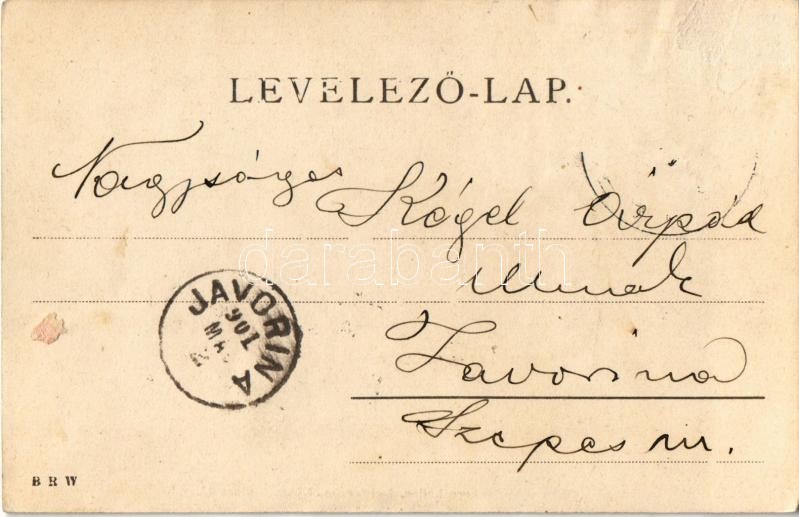 LEVELEZŐ-LAP.
Nagyságos
Kégel Árpád
Urnak
Javorina
Szepes m.
JAVORINA
901
MA
darabanth
BRW